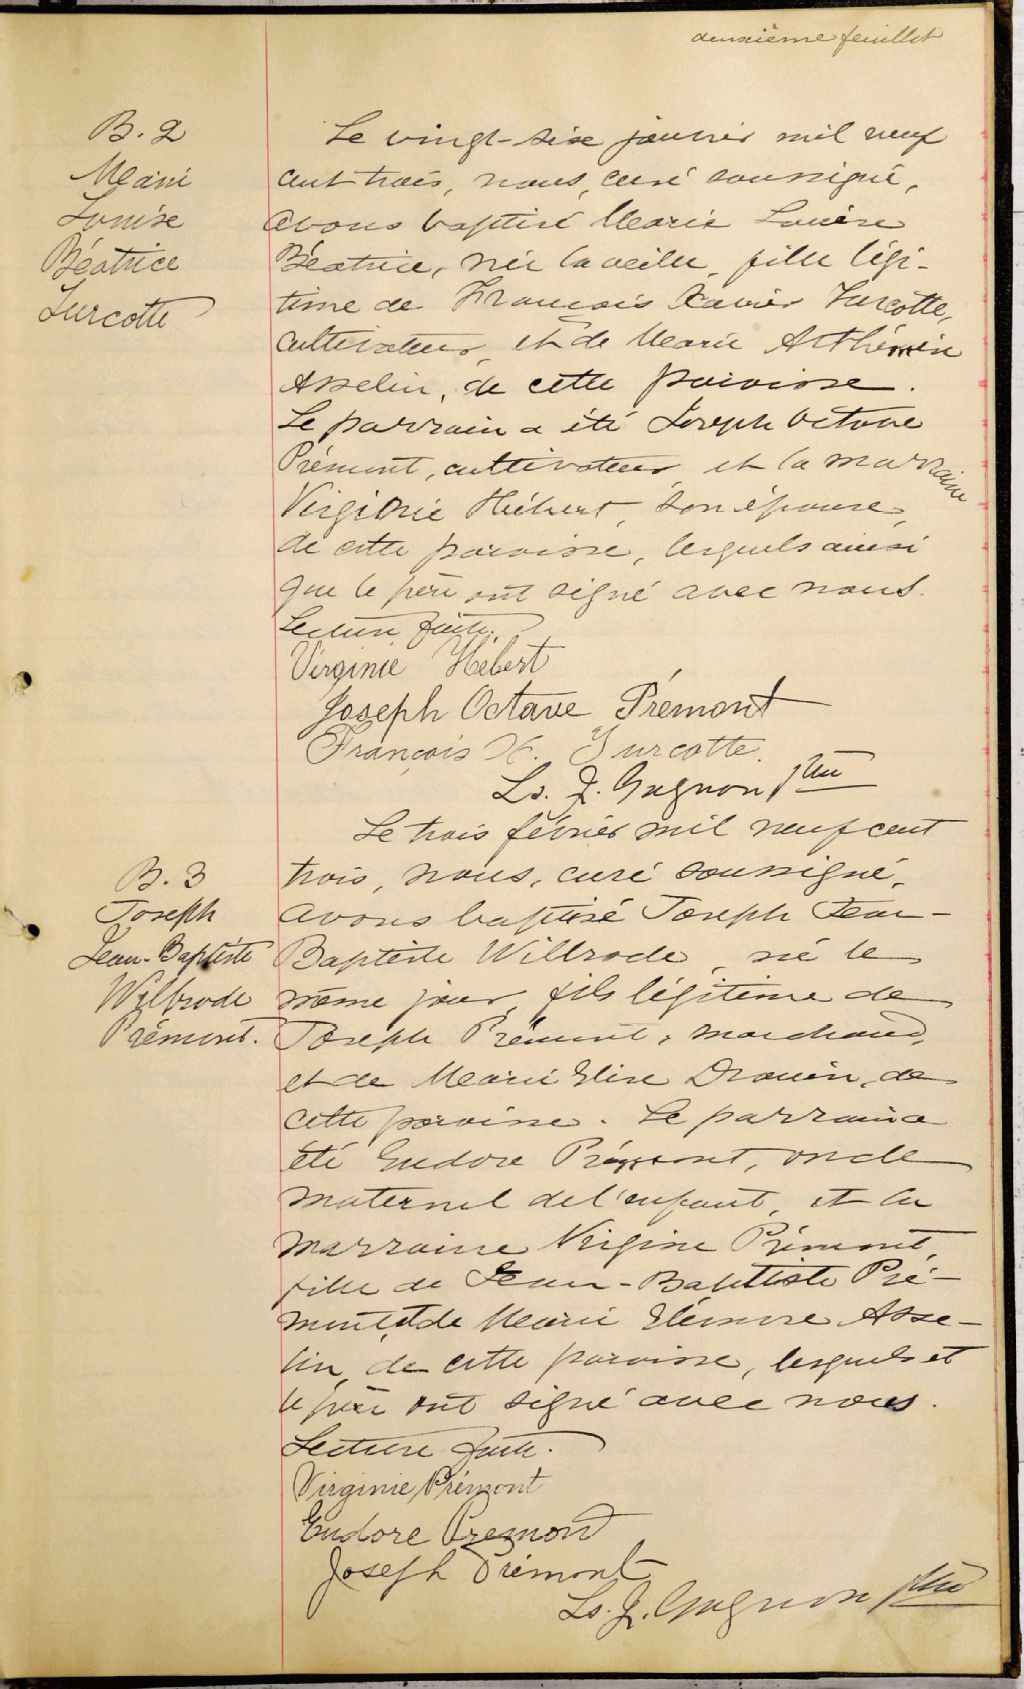 deuxième feuillet
B. 2
Marie
Louise
Béatrice
Turcotte
Le vingt-six janvier mil neuf
cent trois, nous, curé soussigné,
avons baptisé Marie Louise
Béatrice, née la veille, fille légi-
time de François Xavier Turcotte,
cultivateur, et de Marie Arthémise
Asselin, de cette paroisse.
Le parrain a été Joseph Octave
Prémont, cultivateur, et la marraine
Virginie Hébert, son épouse,
de cette paroisse, lesquels ainsi
que le père ont signé avec nous.
Lecture faite.
Virginie Hébert
Joseph Octave Prémont
François X. Turcotte.
Ls. J. Gagnon ptre
B. 3
Joseph
Jean-Baptiste
Wilbrode
Prémont.
Le trois février mil neuf cent
trois, nous, curé soussigné,
avons baptisé Joseph Jean-
Baptiste Wilbrode, né le
même jour, fils légitime de
Joseph Prémont, marchand,
et de Marie Elise Drouin, de
cette paroisse. Le parrain a
été Eudore Prémont, oncle
maternel de l'enfant, et la
marraine Virgine Prémont,
fille de Jean-Baptiste Pré-
mont et de Marie Eléonore Asse-
lin, de cette paroisse, lesquels et
le père ont signé avec nous.
Lecture faite.
Virginie Prémont
Eudore Prémont
Joseph Prémont
Ls. J. Gagnon ptre